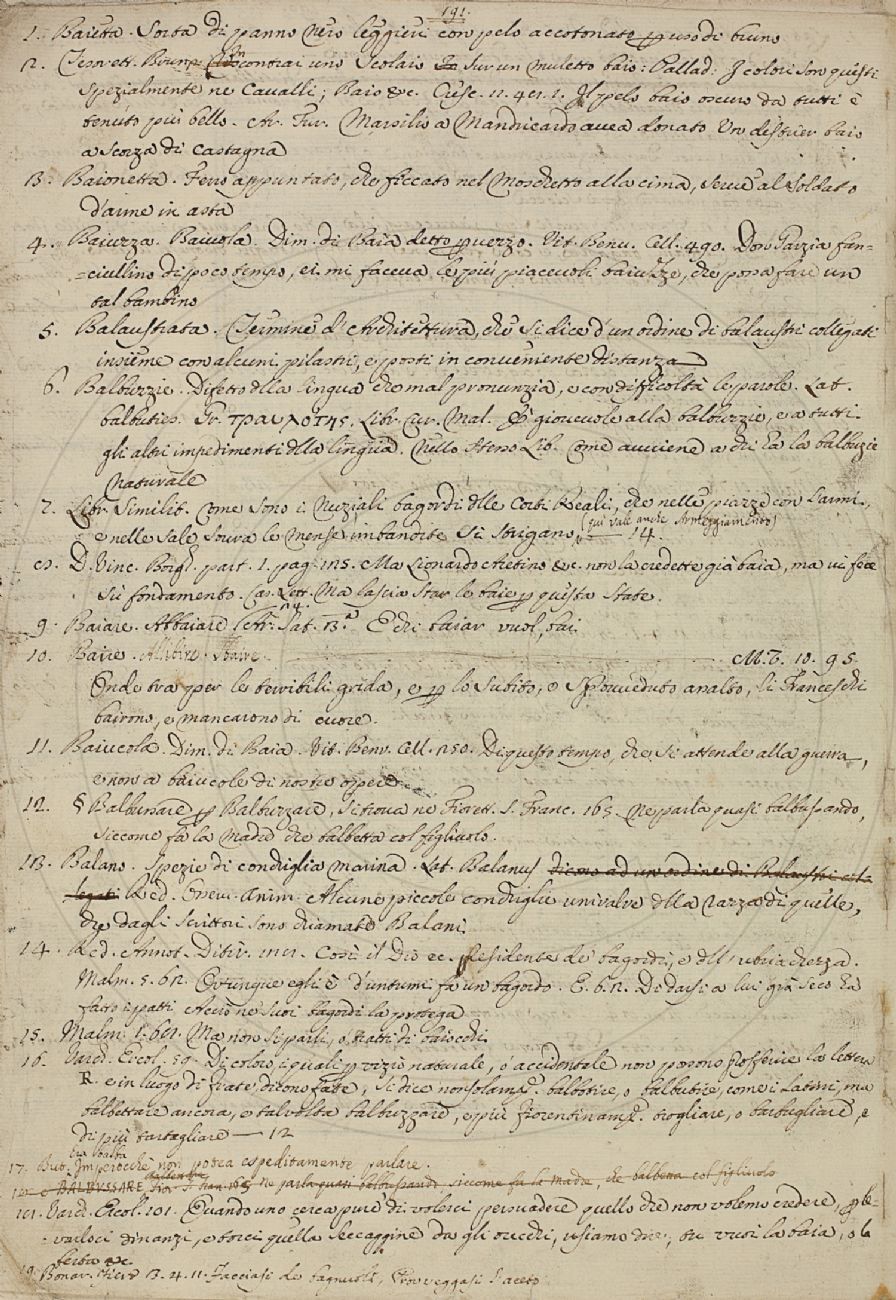 191.
1. Baietta. Sorta di panno nero leggieri con pelo accotonato p uso di bruno
2. Tesorett. Brun. contrai uno Scolaio Sur un muletto baio: Pallad. I colori son questi
spezialmente ne Cavalli; Baio &c. il pelo baio oscuro da tutti è
tenuto più bello. Ar. Fur. Marsilio a Mandricardo avea donato Un destrier baio
a scorza di castagna
3. Baionetta. Ferro appuntato, che ficcato nel Moschetto alla cima, serve al Soldato
d'arme in asta
4. Baiuzza. Baiuola. Dim. di Baia detto p vezzo. Vit. Benv. Cell. 490. Don Garzia fan=
=ciullino di poco tempo, ei mi faceva le più piacevoli baiuzze, che possa fare un
tal bambino
5. Balaustrata. Termine d'Architettura, che si dice d'un ordine di balaustri collegati
insieme con alcuni pilastri, e posti in conveniente distanza
6. Balbuzzie. Difetto dlla lingua che mal pronunzia, e con difficoltà le parole. Lat.
balbuties. Gr. τραυλότης. Libr. Cur. Mal. È giovevole alla balbuzzie, e a tutti
gli altri impedimenti dlla lingua. Nello stesso Lib. Come avviene a chi ha la balbuzie
naturale
7. Libr. Similit. Come sono i nuziali bagordi dlle Corti Reali, che nelle piazze con l'armi,
e nelle sale sovra le mense imbandite si sbrigano (qui vale anche Armeggiamento) — 14.
8. D. Vinc. Borgh. part. 1. pag. 115. Ma Lionardo Aretino &c. non la credette già baia, ma vi fece
sù fondamento. Cas. Lett. Ma lascia star le baie p questa state.
9. Baiare. Abbaiare Ar. Sat. 3.a E chi baiar vuol, bai
10. Baire. Allibire. Sbaire. M.V. 10. 95.
Onde tra per le terribili grida, e p lo subito, e sprovveduto assalto, li Franceschi
bairono, e mancarono di cuore.
11. Baiucola. Dim. di Baia. Vit. Benv. Cell. 250. Di questo tempo, che si attende alla guerra,
e non a baiucole di nostre opere
12. § Balbussare p Balbuzzare, si trova ne Fiorett. S. Franc. 165. Ne parla quasi balbussando,
siccome fà la Madre che balbetta col figliuolo.
13. Balano. Spezie di conchiglia marina. Lat. Balanus dicono ad un ordine di Balaustri col=
legati Red. Osserv. Anim. Alcune piccole conchiglie univalve dlla razza di quelle,
che dagli scrittori sono chiamate Balani.
14. Red. Annot. Ditir. Così il Dio ec. Presidente de' bagordi, e dll'ubriachezza.
Malm. 5. 62. Ovunque egli è d'untumi fà un bagordo. E. 6. 2. Di darsi a lui già seco ha
fatto i patti Acciò ne' suoi bagordi la protega
15. Malm. 1. 61. Ma non si parli, o tratti di baiocchi.
16. Varch. Ercol. 59. Di coloro, i quali p vizio naturale, o accidentale non possono profferire la lettera
R. e in luogo di frate, dicono fate, si dice non solamte. balbotire, o balbutire, come i Latini, ma
balbettare ancora, e talvolta balbuzzare, e più fiorentinamte. trogliare, o barbugliare, e
di più tartagliare — 12
17. But. Era balba Imperocchè non potea espeditamente parlare.
BALBUSSARE Fior. S. Fran. 165 Ne parla quasi balbussando siccome fa la madre, che balbetta col figliuolo
18. Varch. Ercol. 101. Quando uno cerca pure di volerci persuadere quello che non volemo credere, p le=
varloci dinanzi, e torci quella seccaggine da gli orecchi, usiamo dire, tu vuoi la baia, o la
berta &c.
19. Bonar. Fiera 3. 4. 11. Facciasi de bagnuoli, Provveggasi l'aceto